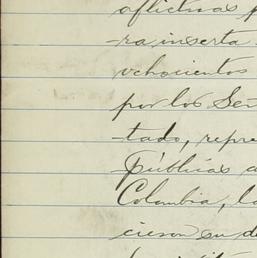 aflictivas p
-ra, inserta
ochocientos
por los Señ
-tado, repre
públicas a
Colombia, la
cieron su de